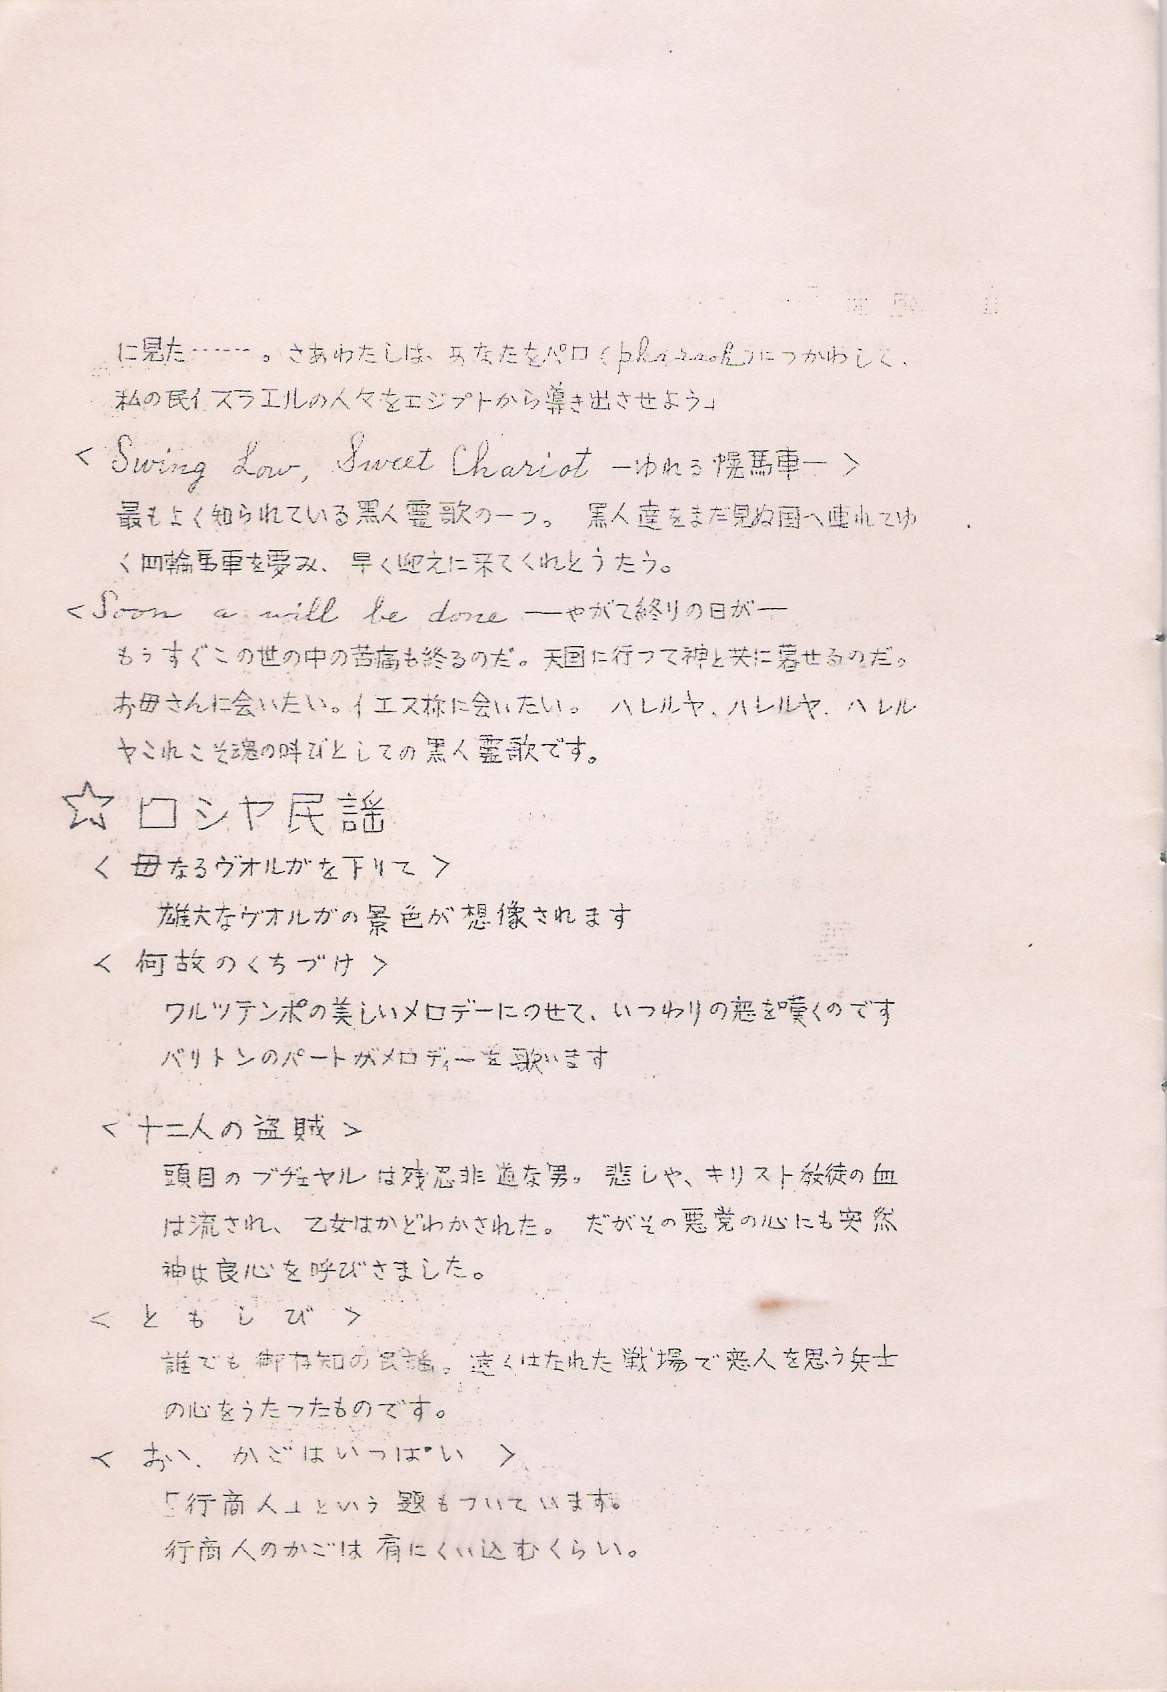 に見た……。さあわたしは、あなたをパロ(pharaoh)につかわして、
私の民イスラエルの人々をエジプトから導き出させよう」
< Swing Low, Sweet Chariot ーゆれる幌馬車ー >
最もよく知られている黒人霊歌の一つ。 黒人達をまだ見ぬ国へ連れてゆ
く四輪馬車を夢み、早く迎えに来てくれとうたう。
<Soon a will be done ーやがて終りの日がー
もうすぐこの世の中の苦痛も終るのだ。天国に行って神と共に暮せるのだ。
お母さんに会いたい。イエス様に会いたい。 ハレルヤ、ハレルヤ、ハレル
ヤこれこそ魂の叫びとしての黒人霊歌です。
☆ロシヤ民謡
< 母なるヴオルガを下りて >
雄大なヴオルガの景色が想像されます
< 何故のくちづけ >
ワルツテンポの美しいメロデーにのせて、いつわりの恋を嘆くのです
バリトンのパートがメロディーを歌います
< 十二人の盗賊 >
頭目のブヂェヤルは残忍非道な男。悲しや、キリスト教徒の血
は流され、乙女はかどわかされた。 だがその悪党の心にも突然
神は良心を呼びさました。
< ともしび >
誰でも御存知の民謡。遠くはなれた戦場で恋人を思う兵士
の心をうたったものです。
< おゝ、かごはいっぱい >
「行商人」という題もついています。
行商人のかごは肩にくい込むくらい。